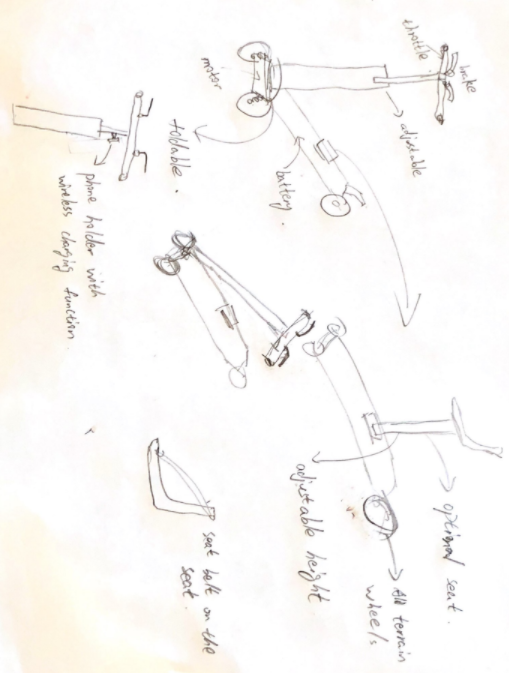 throttle.
brake
adjustable
motor
foldable.
battery.
phone holder with
wireless charging function.
optional seat.
All terrain
wheels
adjustable height
seat belt on the
seat.